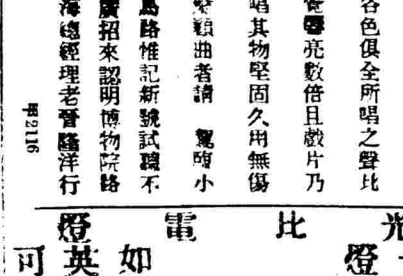 各色俱全所唱之聲比
亮數倍且戲片乃
唱其物堅固久用無傷
顧曲者請 駕臨小
馬路惟記新號試聽不
廣招來認明博物院路
海總經理老晉隆洋行
甲2116
光比電燈
燈 如英可